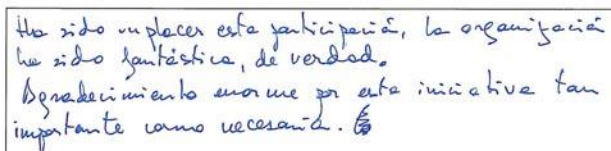 Ha sido un placer esta participación, la organización
ha sido fantástica, de verdad.
Agradecimiento enorme por esta iniciativa tan
importante como necesaria.